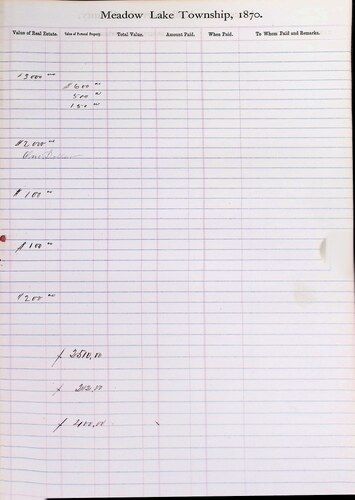 Meadow Lake Township, 1870.
Value of Real Estate. Value of Personal Property. Total Value. Amount Paid. When Paid. To Whom Paid and Remarks.
$3000 00
$600 00
500 00
150 00
$2,000 00
$100 00
$100 00
$200 00